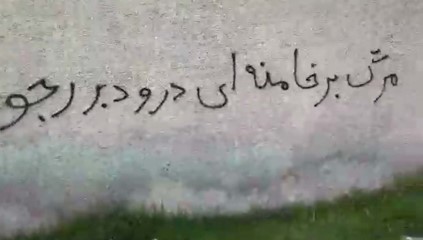 مرگ بر خامنه ای درود بر رجو